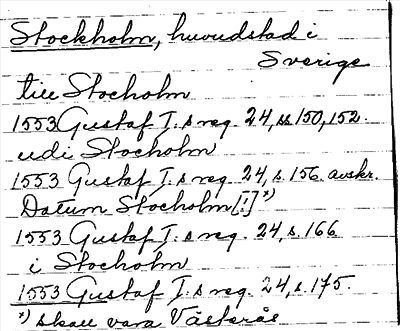 Stockholm, huvudstad i
Sverige
till Stocholm
1553 Gustaf I:s reg. 24, ss 150, 152.
udi Stocholm
1553 Gustaf I:s reg. 24, s. 156. avskr.
Datum Stocholm [!] *)
1553 Gustaf I:s reg. 24, s. 166
i Stocholm
1553 Gustaf I:s reg. 24, s. 175.
*) skall vara Västerås